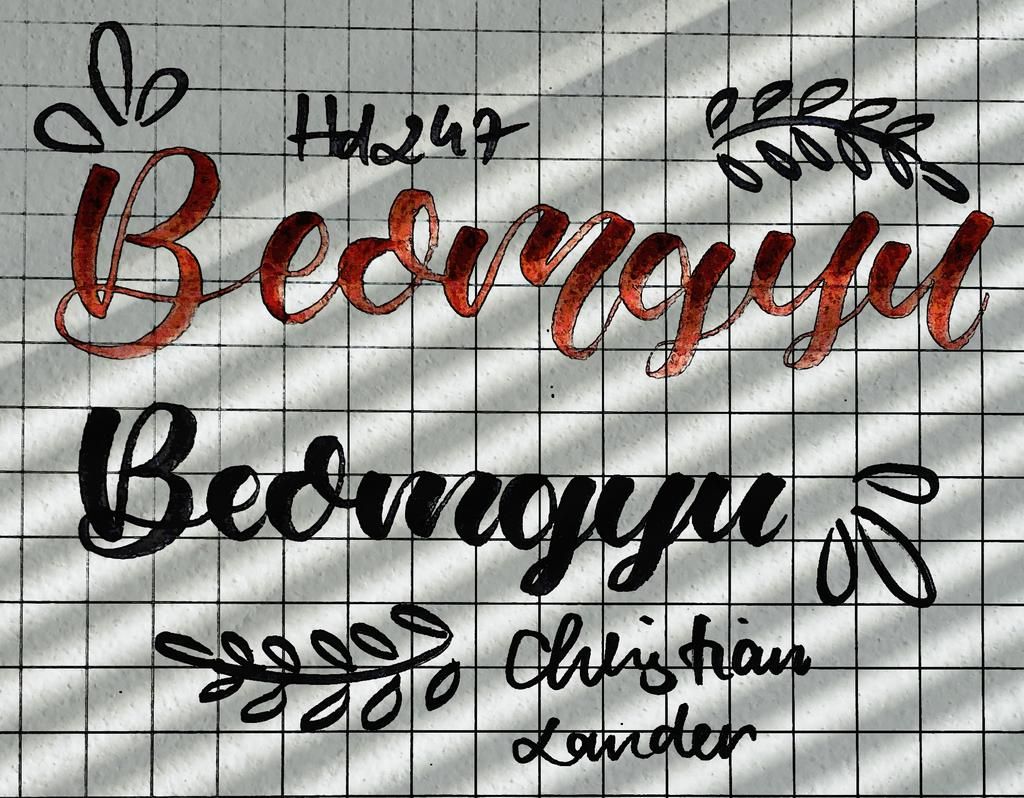 Hd247
Beomgyu
Beomgyu
Christian
Lander